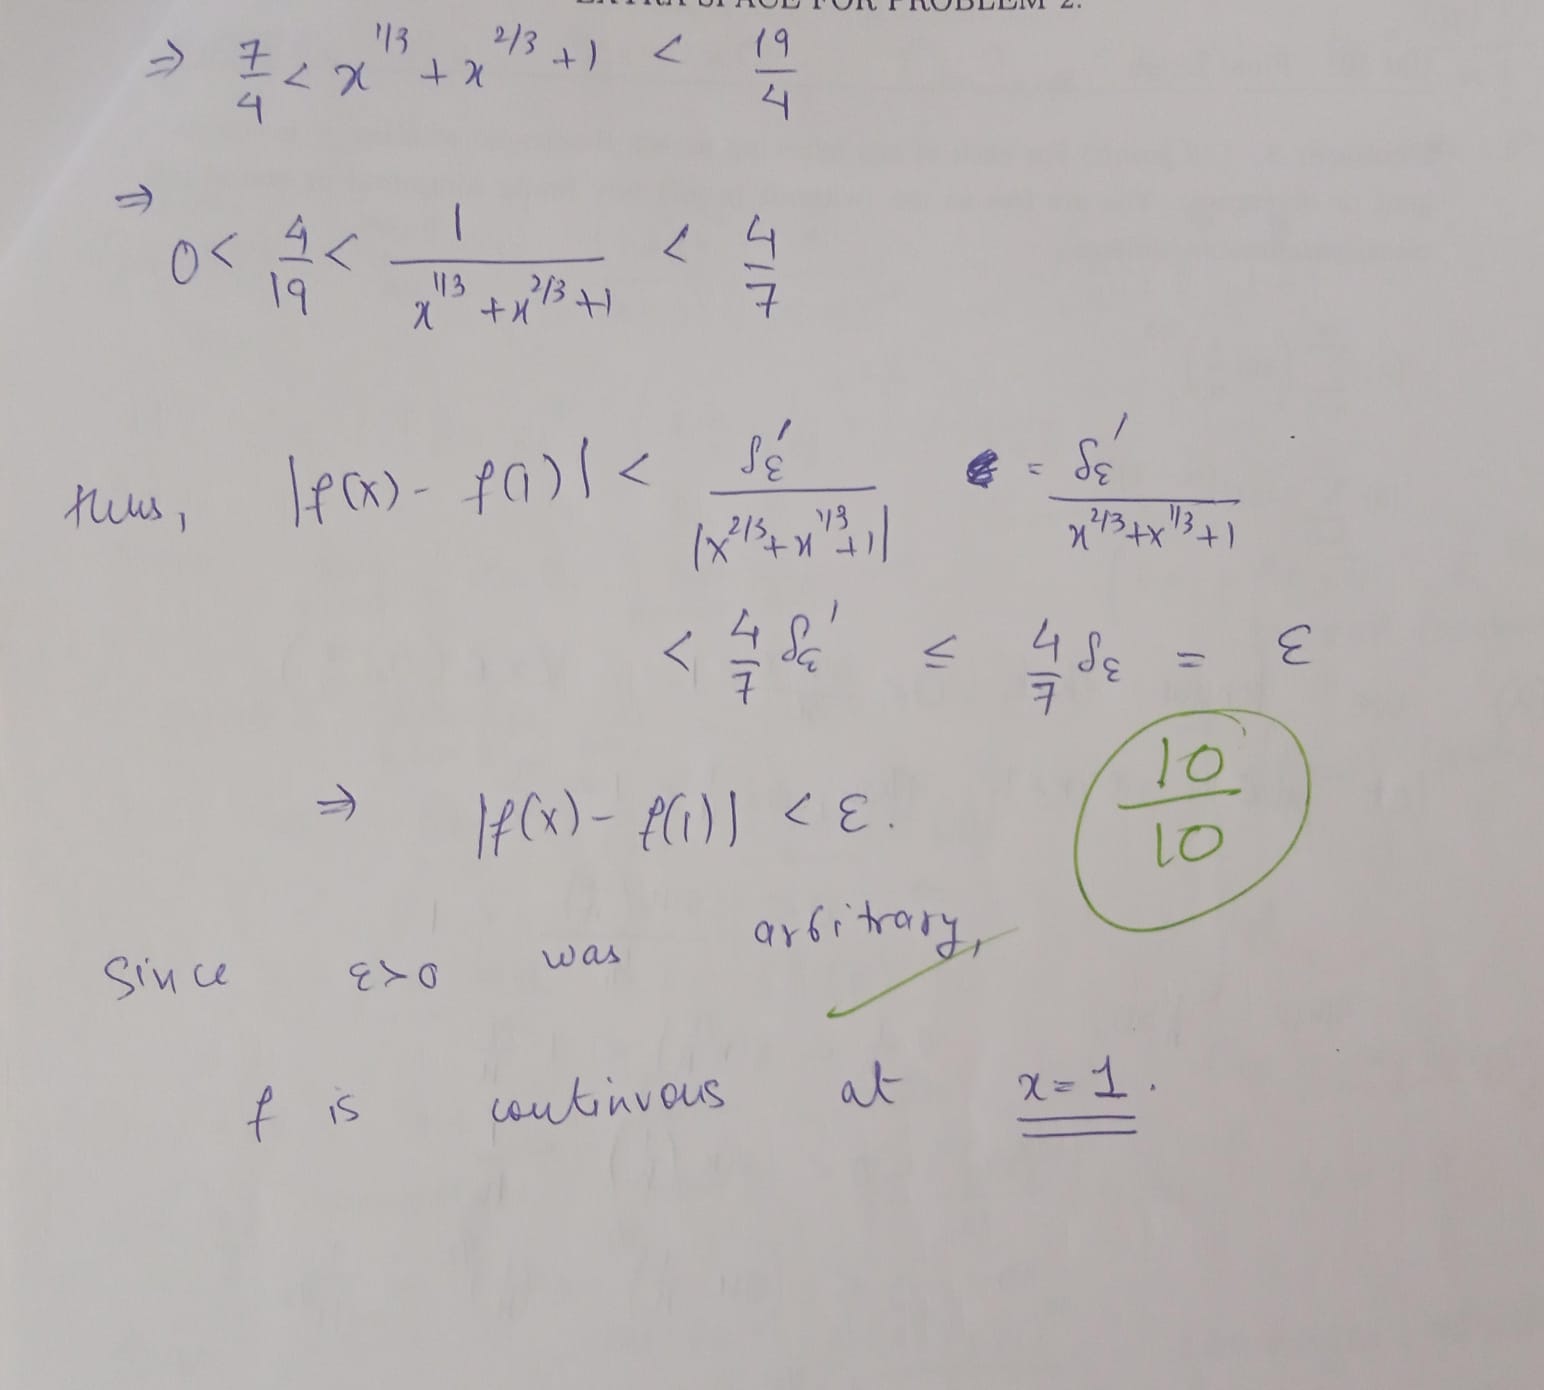 EXTRA SPACE FOR PROBLEM 2.
⇒ 7/4 < x^{1/3} + x^{2/3} + 1 < 19/4
⇒ 0 < 4/19 < 1/(x^{1/3} + x^{2/3} + 1) < 4/7
thus, |f(x) - f(1)| < δ_ε'/|x^{2/3} + x^{1/3} + 1| = δ_ε'/(x^{2/3} + x^{1/3} + 1)
< 4/7 δ_ε' ≤ 4/7 δ_ε = ε
⇒ |f(x) - f(1)| < ε.
10/10
Since ε>0 was arbitrary,
f is continuous at x = 1.